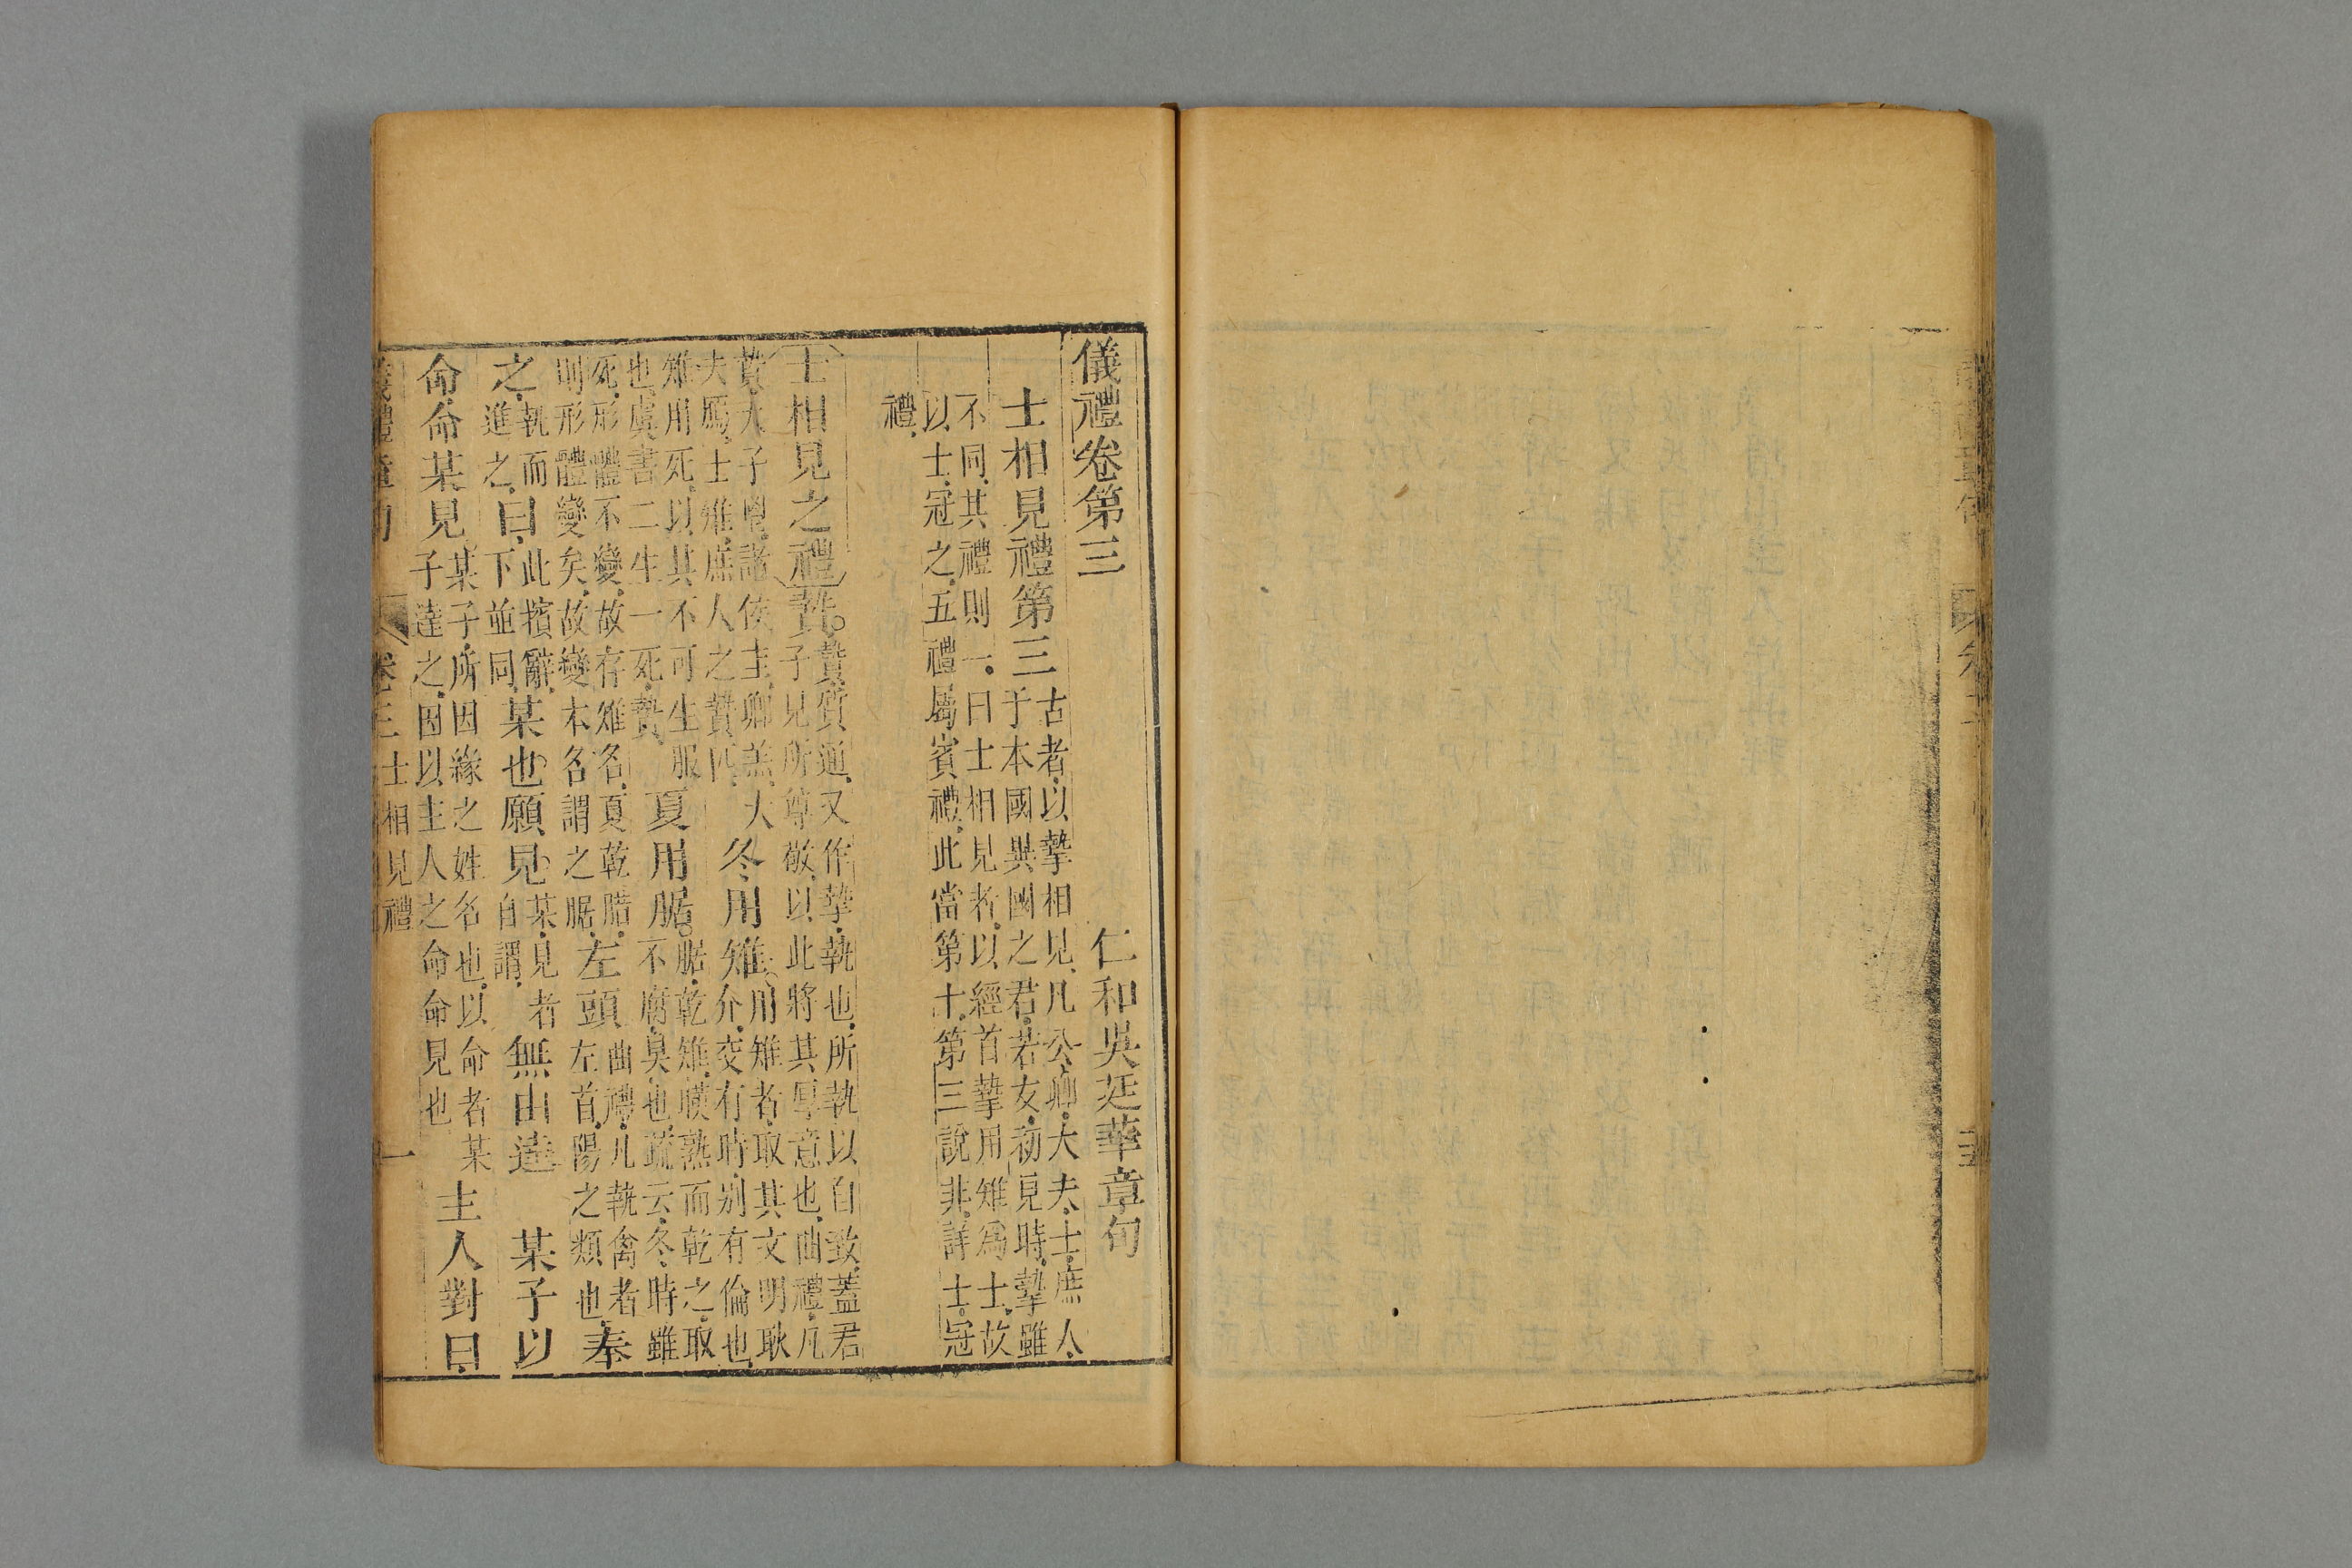 儀禮卷第三
仁和吳廷華章句
士相見禮第三
古者以摯相見凡公卿大夫士庶人
于本國與國之君若友初見時摯雖
不同其禮則一曰士相見者以經首摯用雉爲士故
以士冠之五禮屬賓禮此當第十第三說非詳士冠
禮
士相見之禮贄
贄質通又作摯執也所執以自致蓋君
子見所尊敬以此將其厚意也曲禮凡
贄天子鬯諸侯圭卿羔大
夫鴈士雉庶人之贄匹
冬用雉
用雉者取其文明耿
介交有時别有倫也
雉用死以其不可生服
也虞書二生一死贄
夏用腒
腒乾雉暵熟而乾之取
不腐臭也疏云冬時雖
死形體不變故存雉名夏乾腊
則形體變矣故變本名謂之腒
左頭
曲禮凡執禽者
左首陽之類也
奉
之
執而
進之
曰
此擯辭
下並同
某也願見
某見者
自謂
無由達
某子以
命命某見
某子所因緣之姓名也以命者某
子達之因以主人之命命見也
主人對曰
儀禮章句
卷三
士相見禮
一